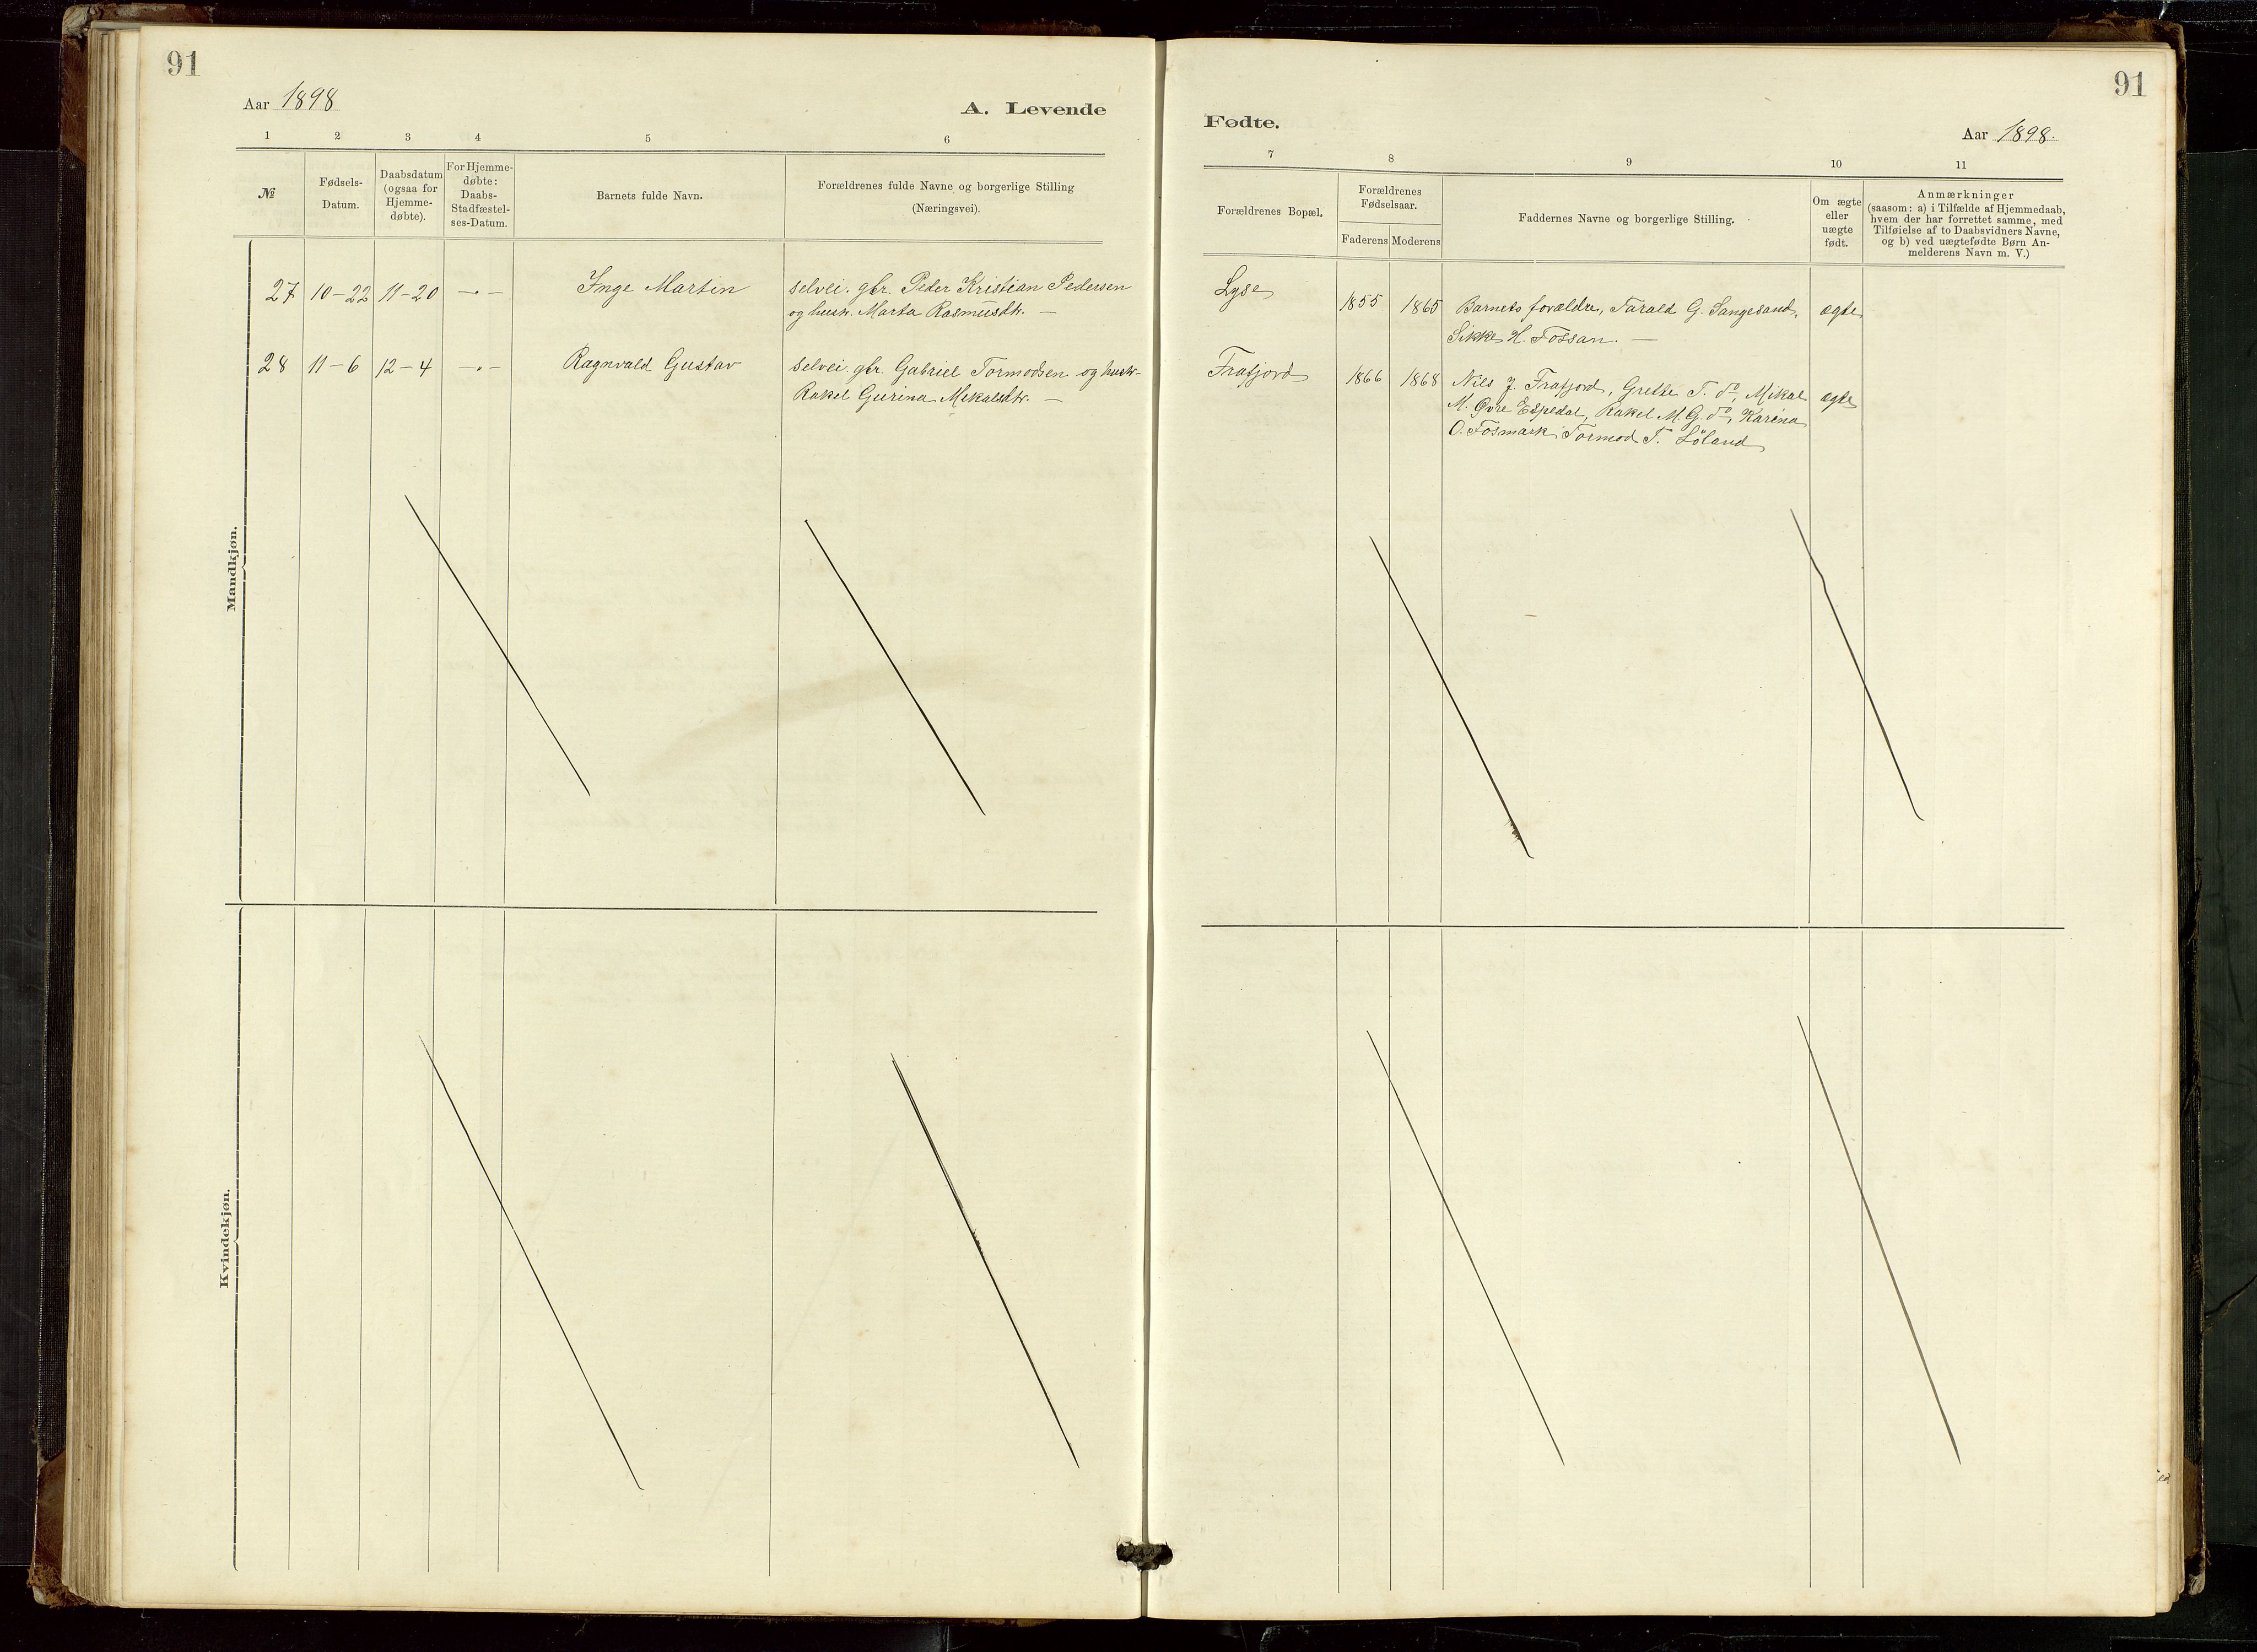 91
Aar 1898
A. Levende
1 2 3 4 5 6
№
Fødsels-
Datum.
Daabsdatum
(ogsaa for
Hjemme-
døbte).
For Hjemme-
døbte:
Daabs-
Stadfæstel-
ses-Datum.
Barnets fulde Navn.
Forældrenes fulde Navne og borgerlige Stilling
(Næringsvei).
Mandkjøn.
27 10-22 11-20 -"- Inge Martin selvei. gbr. Peder Kristian Pedersen
og hustr. Marta Rasmusdtr. —
28 11-6 12-4 -"- Ragnvald Gustav selvei. gbr. Gabriel Tormodsen og hustr.
Rakel Gurina Mikalsdtr. —
Kvindekjøn.
91
Fødte.
Aar 1898.
7 8 9 10 11
Forældrenes Bopæl.
Forældrenes
Fødselsaar.
Faderens Moderens
Faddernes Navne og borgerlige Stilling.
Om ægte
eller
uægte
født.
Anmærkninger
(saasom: a) i Tilfælde af Hjemmedaab,
hvem der har forrettet samme, med
Tilføielse af to Daabsvidners Navne,
og b) ved uægtefødte Børn An-
melderens Navn m. V.)
Lyse 1855 1865 Barnets forældre, Tarald G. Sangesand, ægte
Sikke H. Fossan. —
Frafjord 1866 1868 Nils J. Frafjord, Grethe T. do, Mikal ægte
M. Øvre Espedal, Rakel M. G. do, Karina
O. Fosmark, Tormod T. Løland